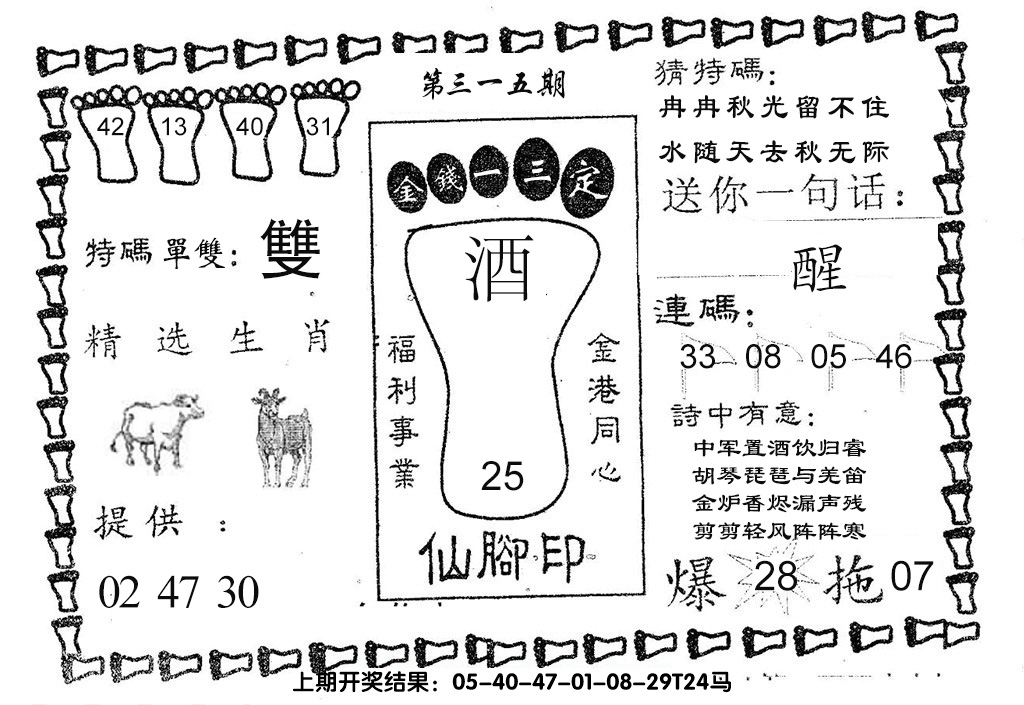 第三一五期
42 13 40 31
特碼單雙：雙
精选生肖
提供：
02 47 30
金錢一三定
酒
福利事業
金港同心
25
仙腳印
猜特碼：
冉冉秋光留不住
水随天去秋无际
送你一句话：
醒
連碼：
33 08 05 46
詩中有意：
中军置酒饮归睿
胡琴琵琶与羌笛
金炉香烬漏声残
剪剪轻风阵阵寒
爆 28 拖 07
上期开奖结果：05-40-47-01-08-29T24马